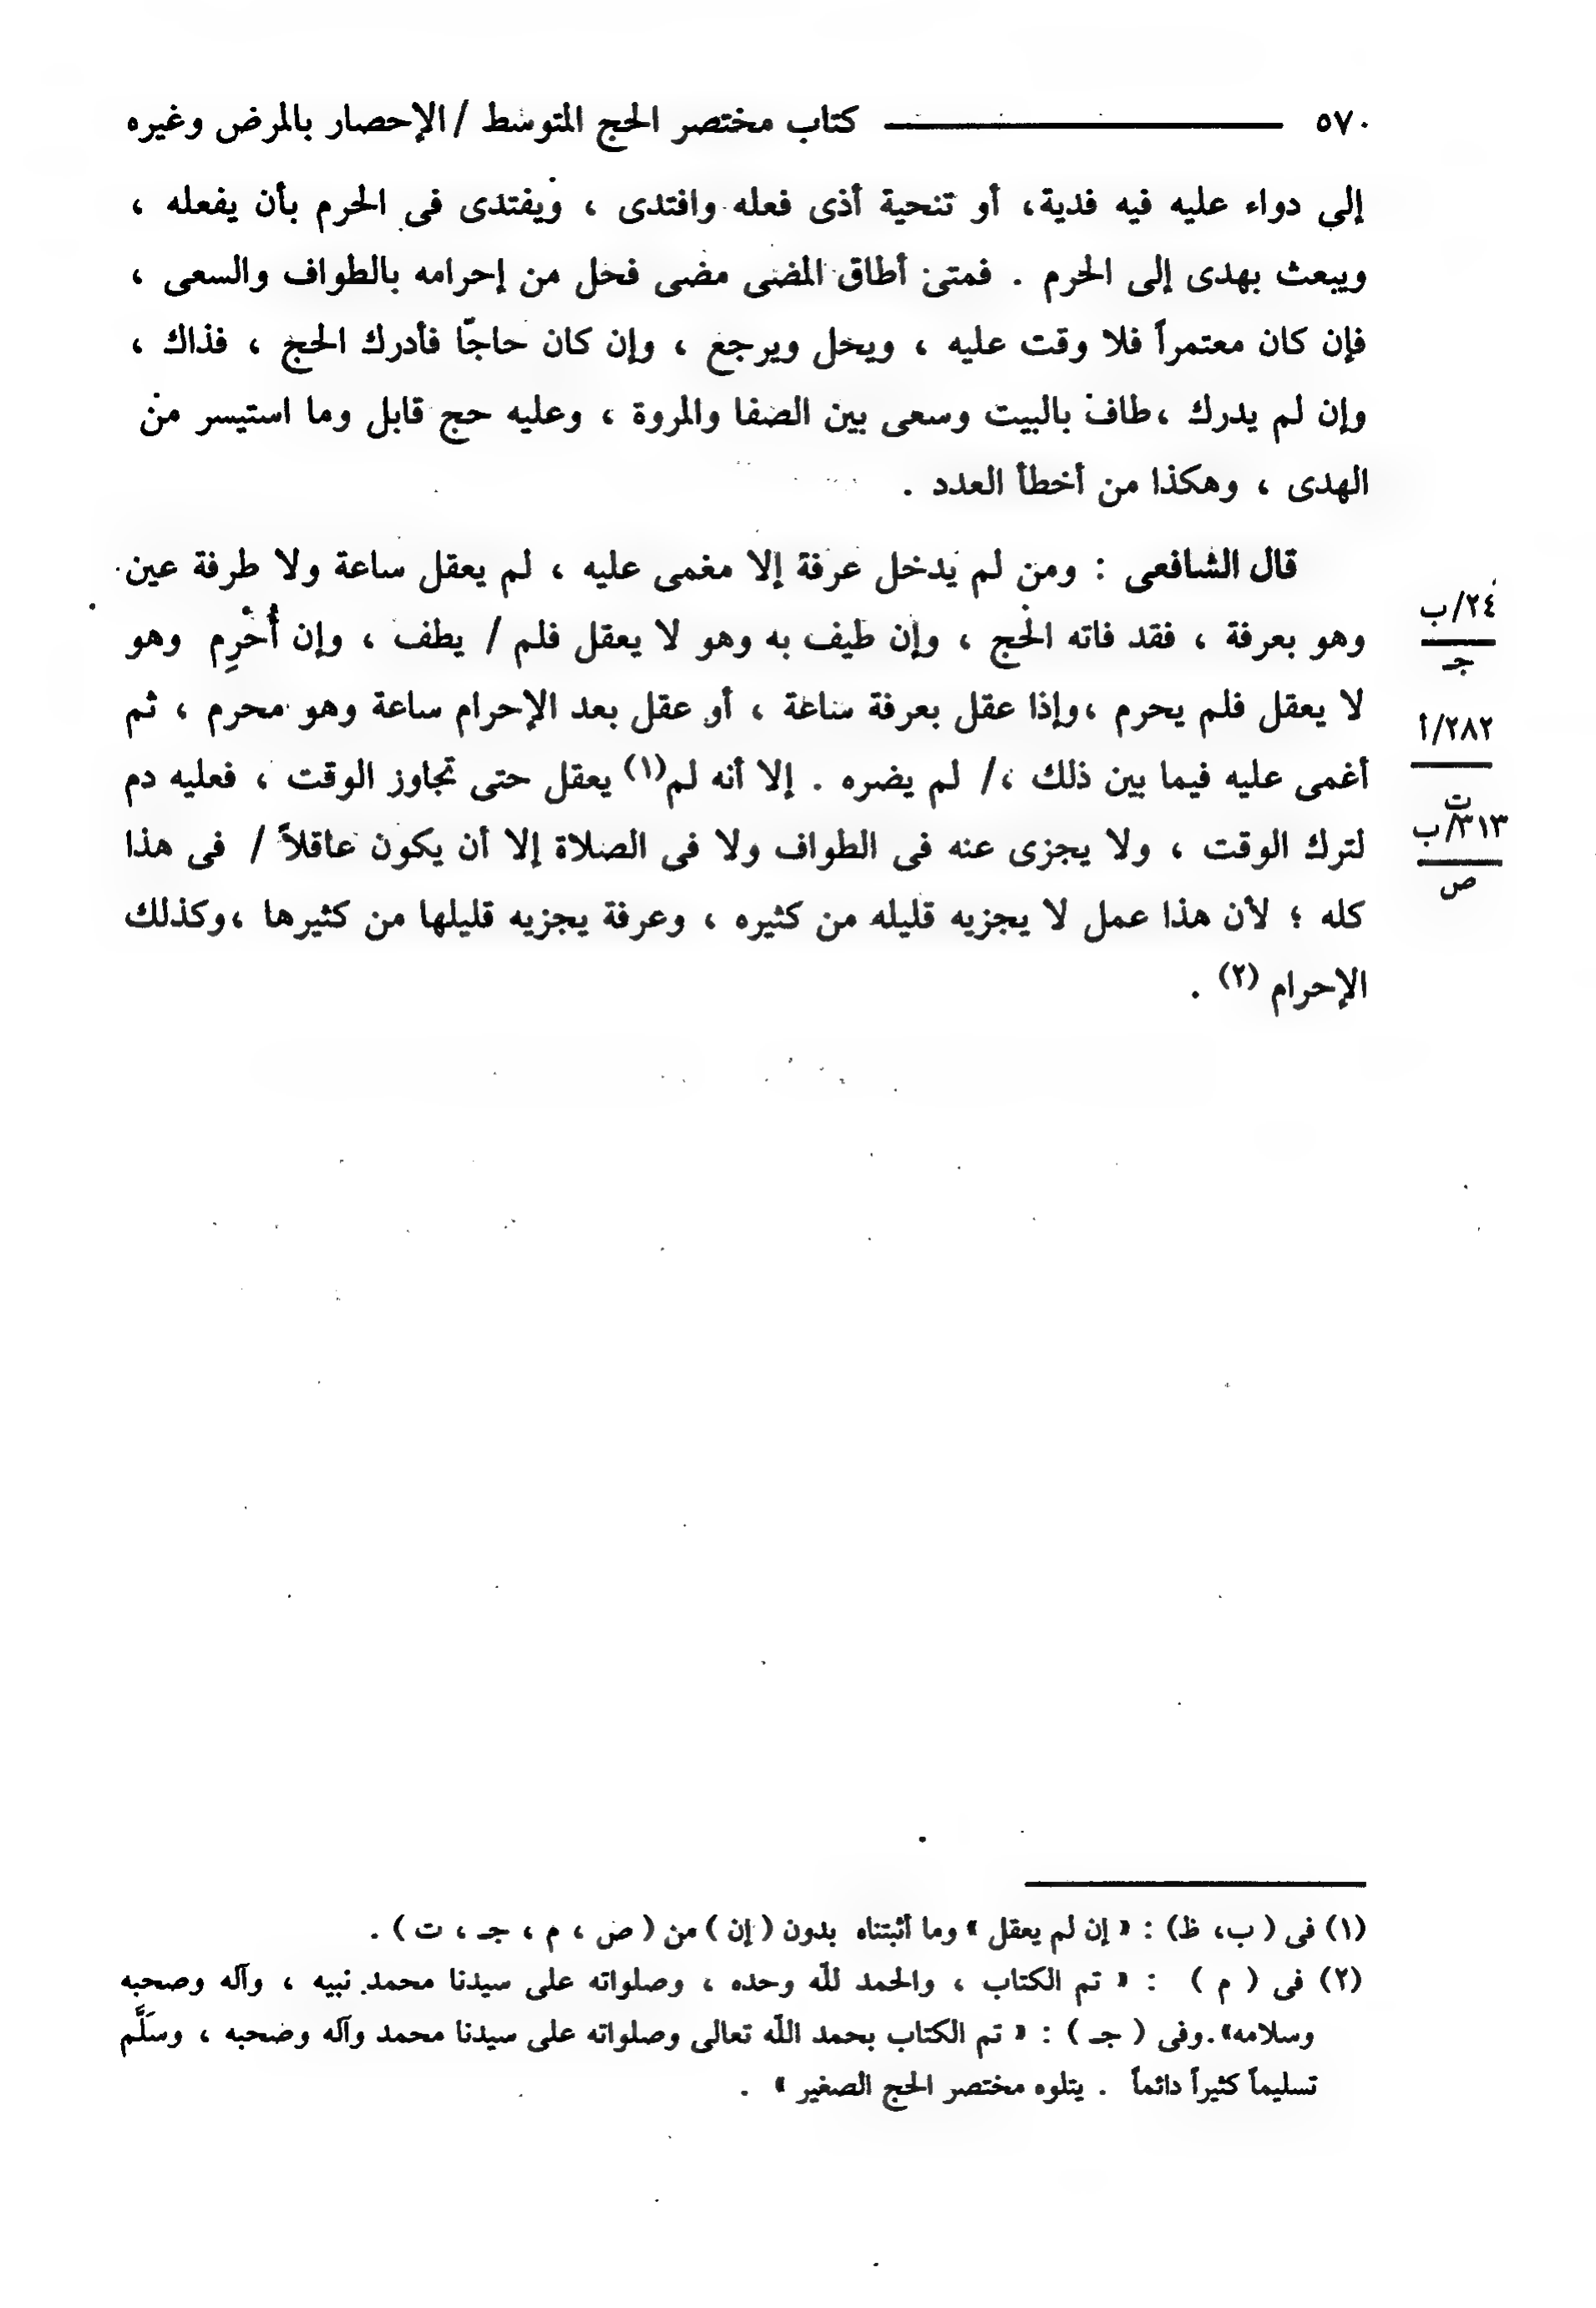 ٥٧٠ ــــــــــــــــــ كتاب مختصر الحج المتوسط / الإحصار بالمرض وغيره
إلى دواء عليه فيه فدية، أو تنحية أذى فعله وافتدى ، ويفتدى فى الحرم بأن يفعله ،
ويبعث بهدى إلى الحرم . فمتى أطاق المضى مضى فحل من إحرامه بالطواف والسعى ،
فإن كان معتمراً فلا وقت عليه ، ويحل ويرجع ، وإن كان حاجّا فأدرك الحج ، فذاك ،
وإن لم يدرك ،طاف بالبيت وسعى بين الصفا والمروة ، وعليه حج قابل وما استيسر من
الهدى ، وهكذا من أخطأ العدد .
قال الشافعى : ومن لم يدخل عرفة إلا مغمى عليه ، لم يعقل ساعة ولا طرفة عين
وهو بعرفة ، فقد فاته الحج ، وإن طيف به وهو لا يعقل فلم / يطف ، وإن أُحْرِم وهو
٢٤/ب
جـ
لا يعقل فلم يحرم ،وإذا عقل بعرفة ساعة ، أو عقل بعد الإحرام ساعة وهو محرم ، ثم
أغمى عليه فيما بين ذلك ،/ لم يضره . إلا أنه لم(١) يعقل حتى تجاوز الوقت ، فعليه دم
٢٨٢/أ
ت
لترك الوقت ، ولا يجزى عنه فى الطواف ولا فى الصلاة إلا أن يكون عاقلاً / فى هذا
٣١٣/ب
ص
كله ؛ لأن هذا عمل لا يجزيه قليله من كثيره ، وعرفة يجزيه قليلها من كثيرها ،وكذلك
الإحرام (٢) .
(١) فى ( ب، ظ) : « إن لم يعقل » وما أثبتناه بدون ( إن ) من ( ص ، م ، جـ ، ت ) .
(٢) فى ( م ) : « تم الكتاب ، والحمد للّه وحده ، وصلواته على سيدنا محمد نبيه ، وآله وصحبه
وسلامه».وفى ( جـ ) : « تم الكتاب بحمد اللّه تعالى وصلواته على سيدنا محمد وآله وصحبه ، وسَلَّم
تسليماً كثيراً دائماً . يتلوه مختصر الحج الصغير » .